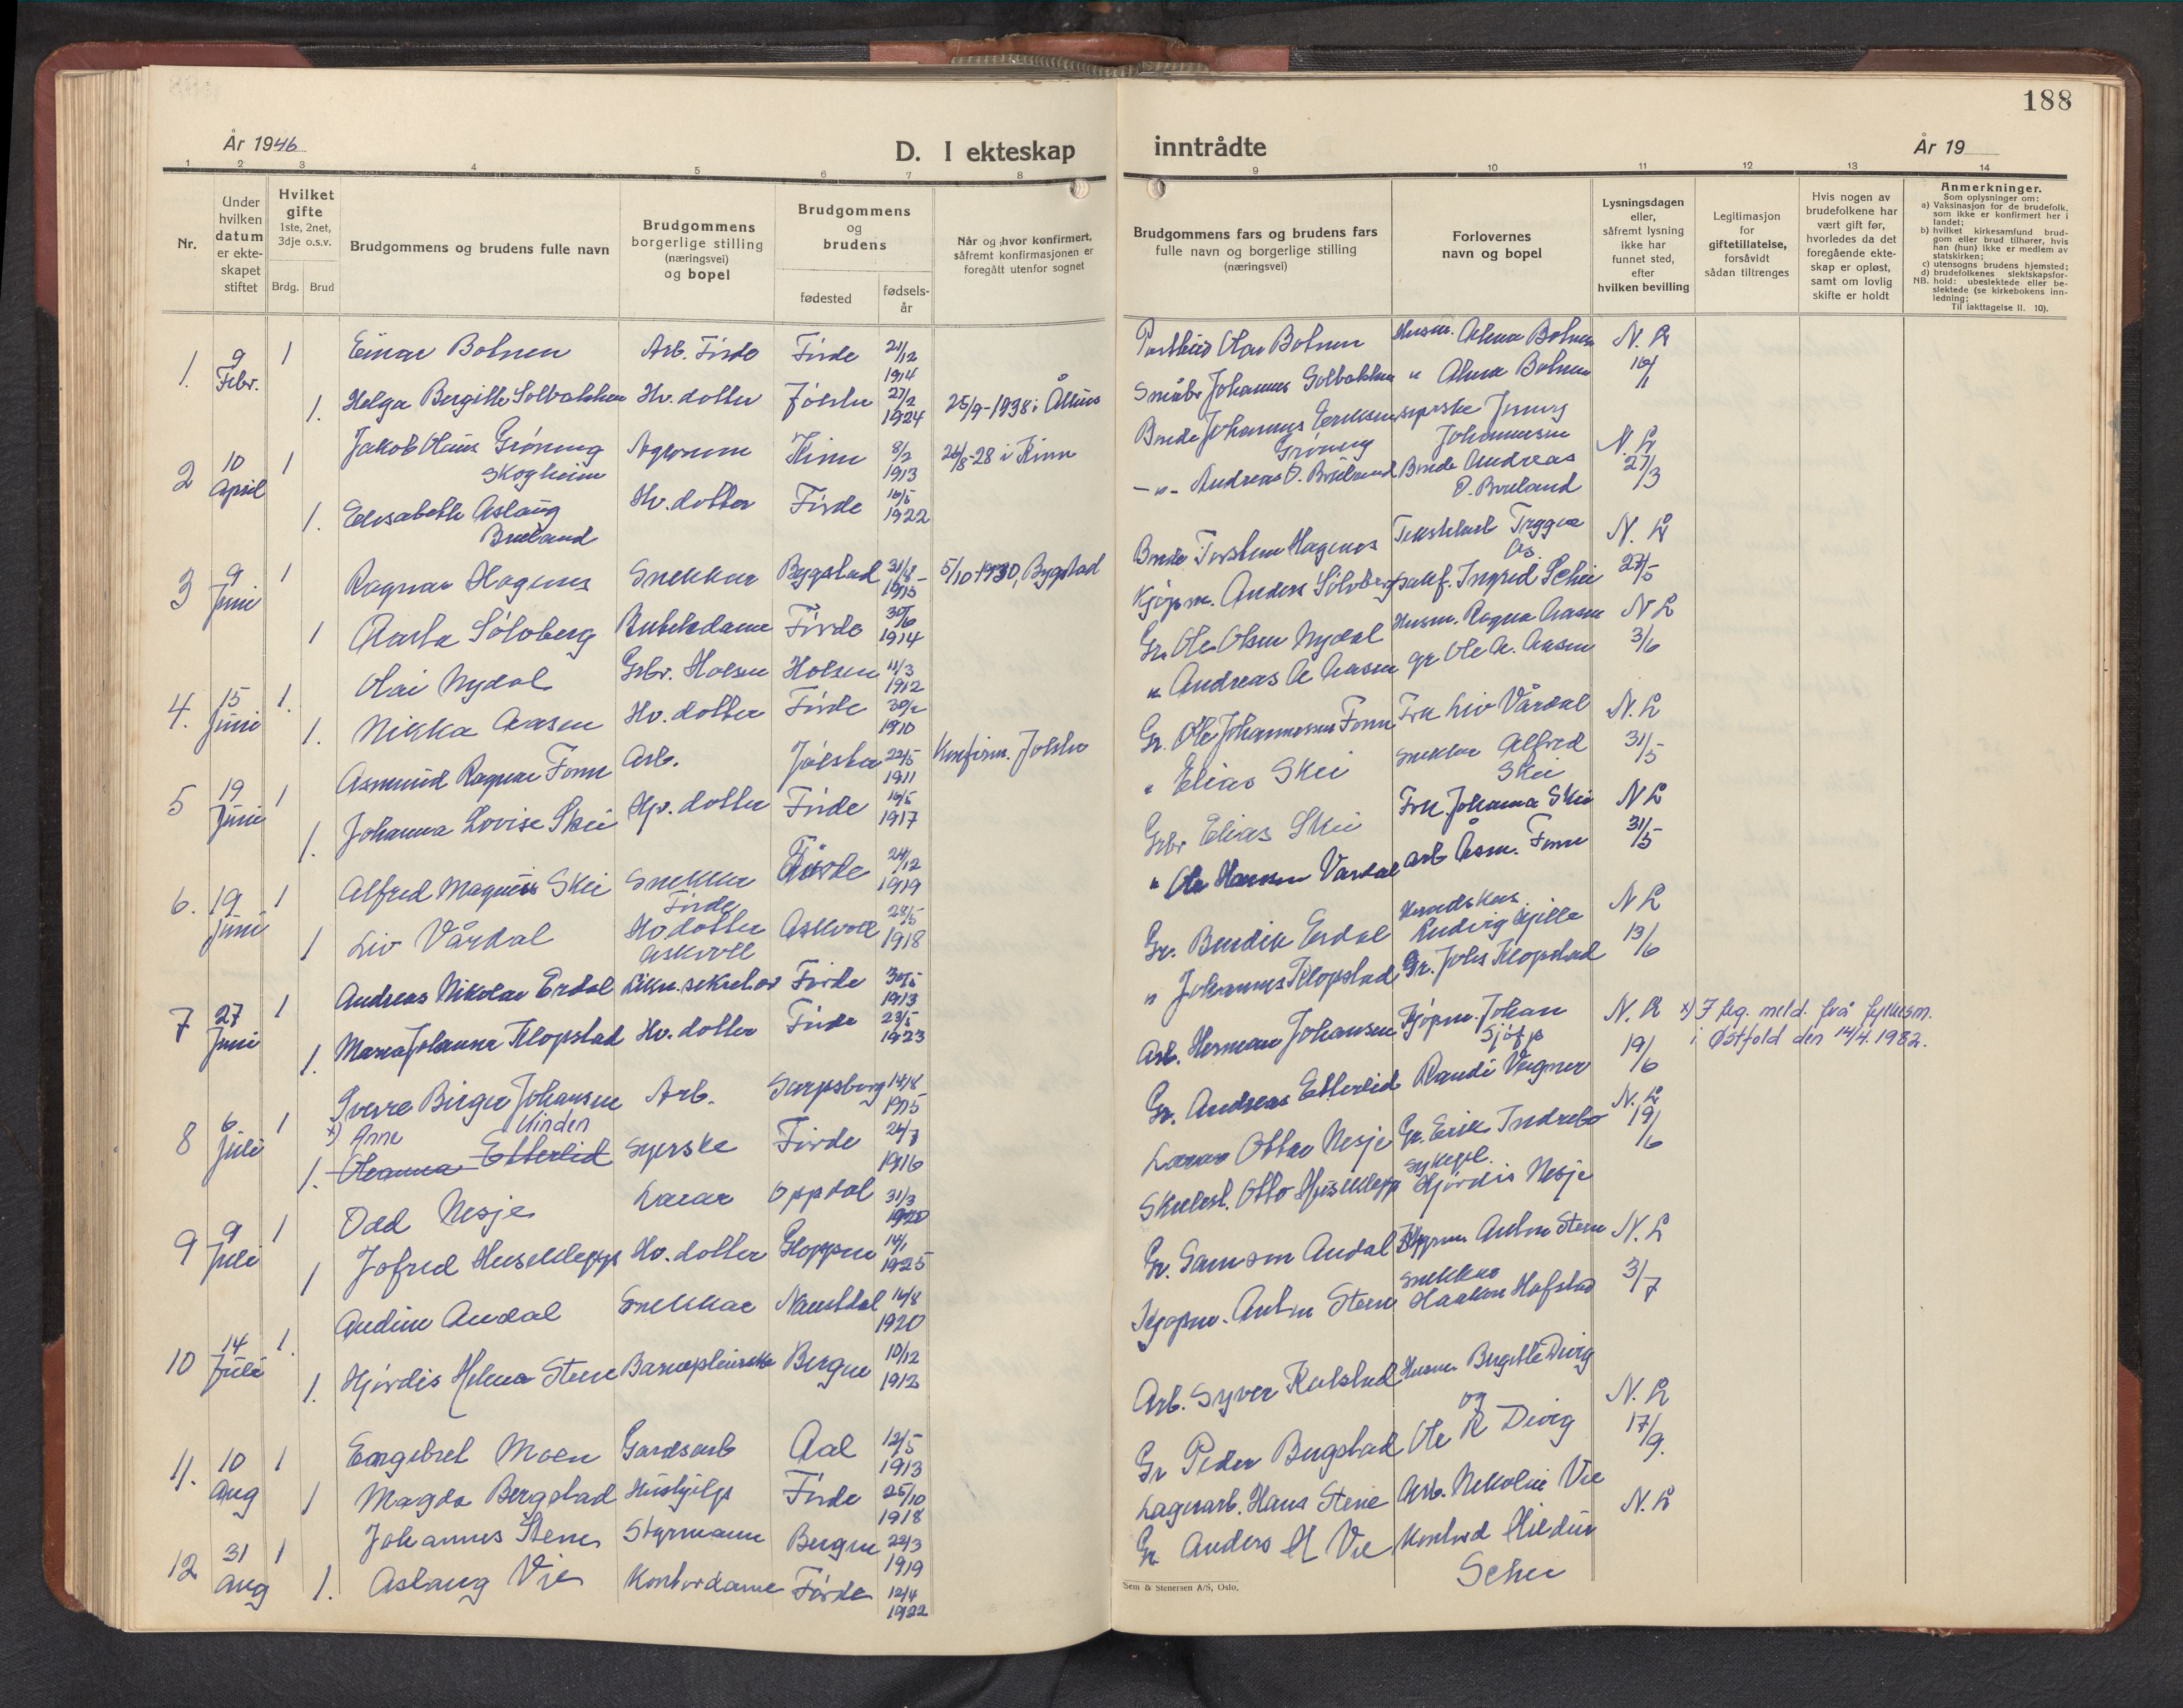 188
År 1946
D. I ekteskap
inntrådte
År 19
1 2 3 4 5 6 7 8 9 10 11 12 13 14
Nr.
Under
hvilken
datum
er ekte-
skapet
stiftet
Hvilket
gifte
1ste, 2net,
3dje o.s.v.
Brdg. Brud
Brudgommens og brudens fulle navn
Brudgommens
borgerlige stilling
(næringsvei)
og bopel
Brudgommens
og
brudens
fødested
fødsels-
år
Når og hvor konfirmert,
såfremt konfirmasjonen er
foregått utenfor sognet
Brudgommens fars og brudens fars
fulle navn og borgerlige stilling
(næringsvei)
Forlovernes
navn og bopel
Lysningsdagen
eller,
såfremt lysning
ikke har
funnet sted,
efter
hvilken bevilling
Legitimasjon
for
giftetillatelse,
forsåvidt
sådan tiltrenges
Hvis nogen av
brudefolkene har
vært gift før,
hvorledes da det
foregående ekte-
skap er opløst,
samt om lovlig
skifte er holdt
Anmerkninger.
Som oplysninger om:
a) Vaksinasjon for de brudefolk,
som ikke er konfirmert her i
landet;
b) hvilket kirkesamfund brud-
gom eller brud tilhører, hvis
han (hun) ikke er medlem av
statskirken;
c) utensogns brudens hjemsted;
d) brudefolkenes slektskapsfor-
NB. hold: ubeslektede eller be-
slektede (se kirkebokens inn-
ledning;
Til iakttagelse II. 10).
1. 9 Febr. 1 Einar Bolnen Arb. Førde Førde 21/12 1914 Olav Bolnen Husm. Alma Bolnen N. L
1. Helga Bergitte Solbakken Hv. dotter Jølster 27/2 1924 25/9-1938 i Ålhus Småbr Johannes Solbakken " Alma Bolnen
2 10 April 1 Jakob Claus Grøning Agronom Kinn 8/2 1913 26/8-28 i Kinn Bonde Johannes syerske
Skogheim Grøning Johannessen N. L
1. Elisabeth Aslaug Hv. dotter Førde 16/5 1922 -"- Andreas O. Bruland Bonde Andreas 27/3
Bruland O. Bruland
3 9 Juni 1 Ragnar Hagenes Snekkar Bygstad 31/8 1915 5/10-1930, Bygstad Bonde Torsten Hagenes Tekstilarb Trygve N. L
Ås
1 Aasta Sølvberg Butikdame Førde 30/6 1914 Kjøpm. Anders Sølvberg Ingrid Schei 23/5
4. 15 Juni 1. Olai Nydal Grbr. Holsen Holsen 11/3 1912 Gr. Ole Olsen Nydal Husm. Ragna Aasen N L
1. Nikka Aasen Hv. dotter Førde 1910 " Andreas A Aasen gr Ole A. Aasen 3/6
5 19 Juni 1 Asmund Ragnar Fonn Arb. Jølster 22/5 1911 Konfirm. Jølster Gr. Ole Johannessen Fonn Frk Liv Vårdal N. L
1. Johanna Lovise Skei Hv. dotter Førde 16/5 1917 " Elias Skei Snekkar Alfred 31/5
Skei
6. 19 Juni 1 Alfred Magnus Skei Snekkar Førde 24/12 1919 Grbr Elias Skei Frk. Johanna Skei N L
Førde
1 Liv Vårdal Hv dotter Askvoll 28/5 1918 " Ole Hansen Vardal Arb Åsm. Fonn 31/5
Askvoll
7 27 Juni 1 Andreas Nikolai Erdal Likn. sekretær Førde 30/5 1913 Gr. Bendik Erdal Heradskas. N L
Ludvig Gjille
1. Maria Johanne Klopstad Hv. dotter Førde 23/5 1923 " Johannes Klopstad Gr. Johs Klopstad 13/6
8 6 Juli 1 Sverre Birger Johansen Arb. Sarpsborg 14/8 1915 Arb. Herman Johansen Kjøpm. Johan N. L x) I flg. meld. frå fylkesm.
i Østfold den 14/4. 1982.
x) Anne Vinden
1. Oleanna Etterlid Syerske Førde 26/7 1916 Gr. Andreas Etterlid Randi 19/6
9 9 Juli 1 Odd Nesje Lærar Oppdal 31/3 1920 Lærar Ottar Nesje Gr. Erik Indrebø N. L 19/6
1 Jofred Huseklepp Hv. dotter Gloppen 14/1 1925 Skulest. Otto Huseklepp Sykepl. Hjørdis Nesje
10 14 Juli 1. Audun Audal Snekkar Naustdal 16/8 1920 Gr. Samson Audal Kjøpm Anton Stene N. L
1. Hjørdis Helene Stene Barnepleierske Bergen 10/12 1912 Kjøpm. Anton Stene Snekkar 3/7
Haakon Hafstad
11. 10 Aug 1 Engebret Moen Gardsarb Aal 12/5 1913 Arb. Syver Kolstad Husm Bergitte Divig
og N. L
1 Magda Bergstad Hushjelp Førde 25/10 1918 Gr Peder Bergstad Ole R Divig 17/9.
12 31 Aug 1 Johannes Stene Styrmann Bergen 22/3 1919 Lagerarb. Hans Stene Arb. Nikolai Vie N. L
1. Aslaug Vie Kontordame Førde 12/4 1922 Gr Anders H Vie Kontord Hildur
Schei
Sem & Stenersen A/S, Oslo.